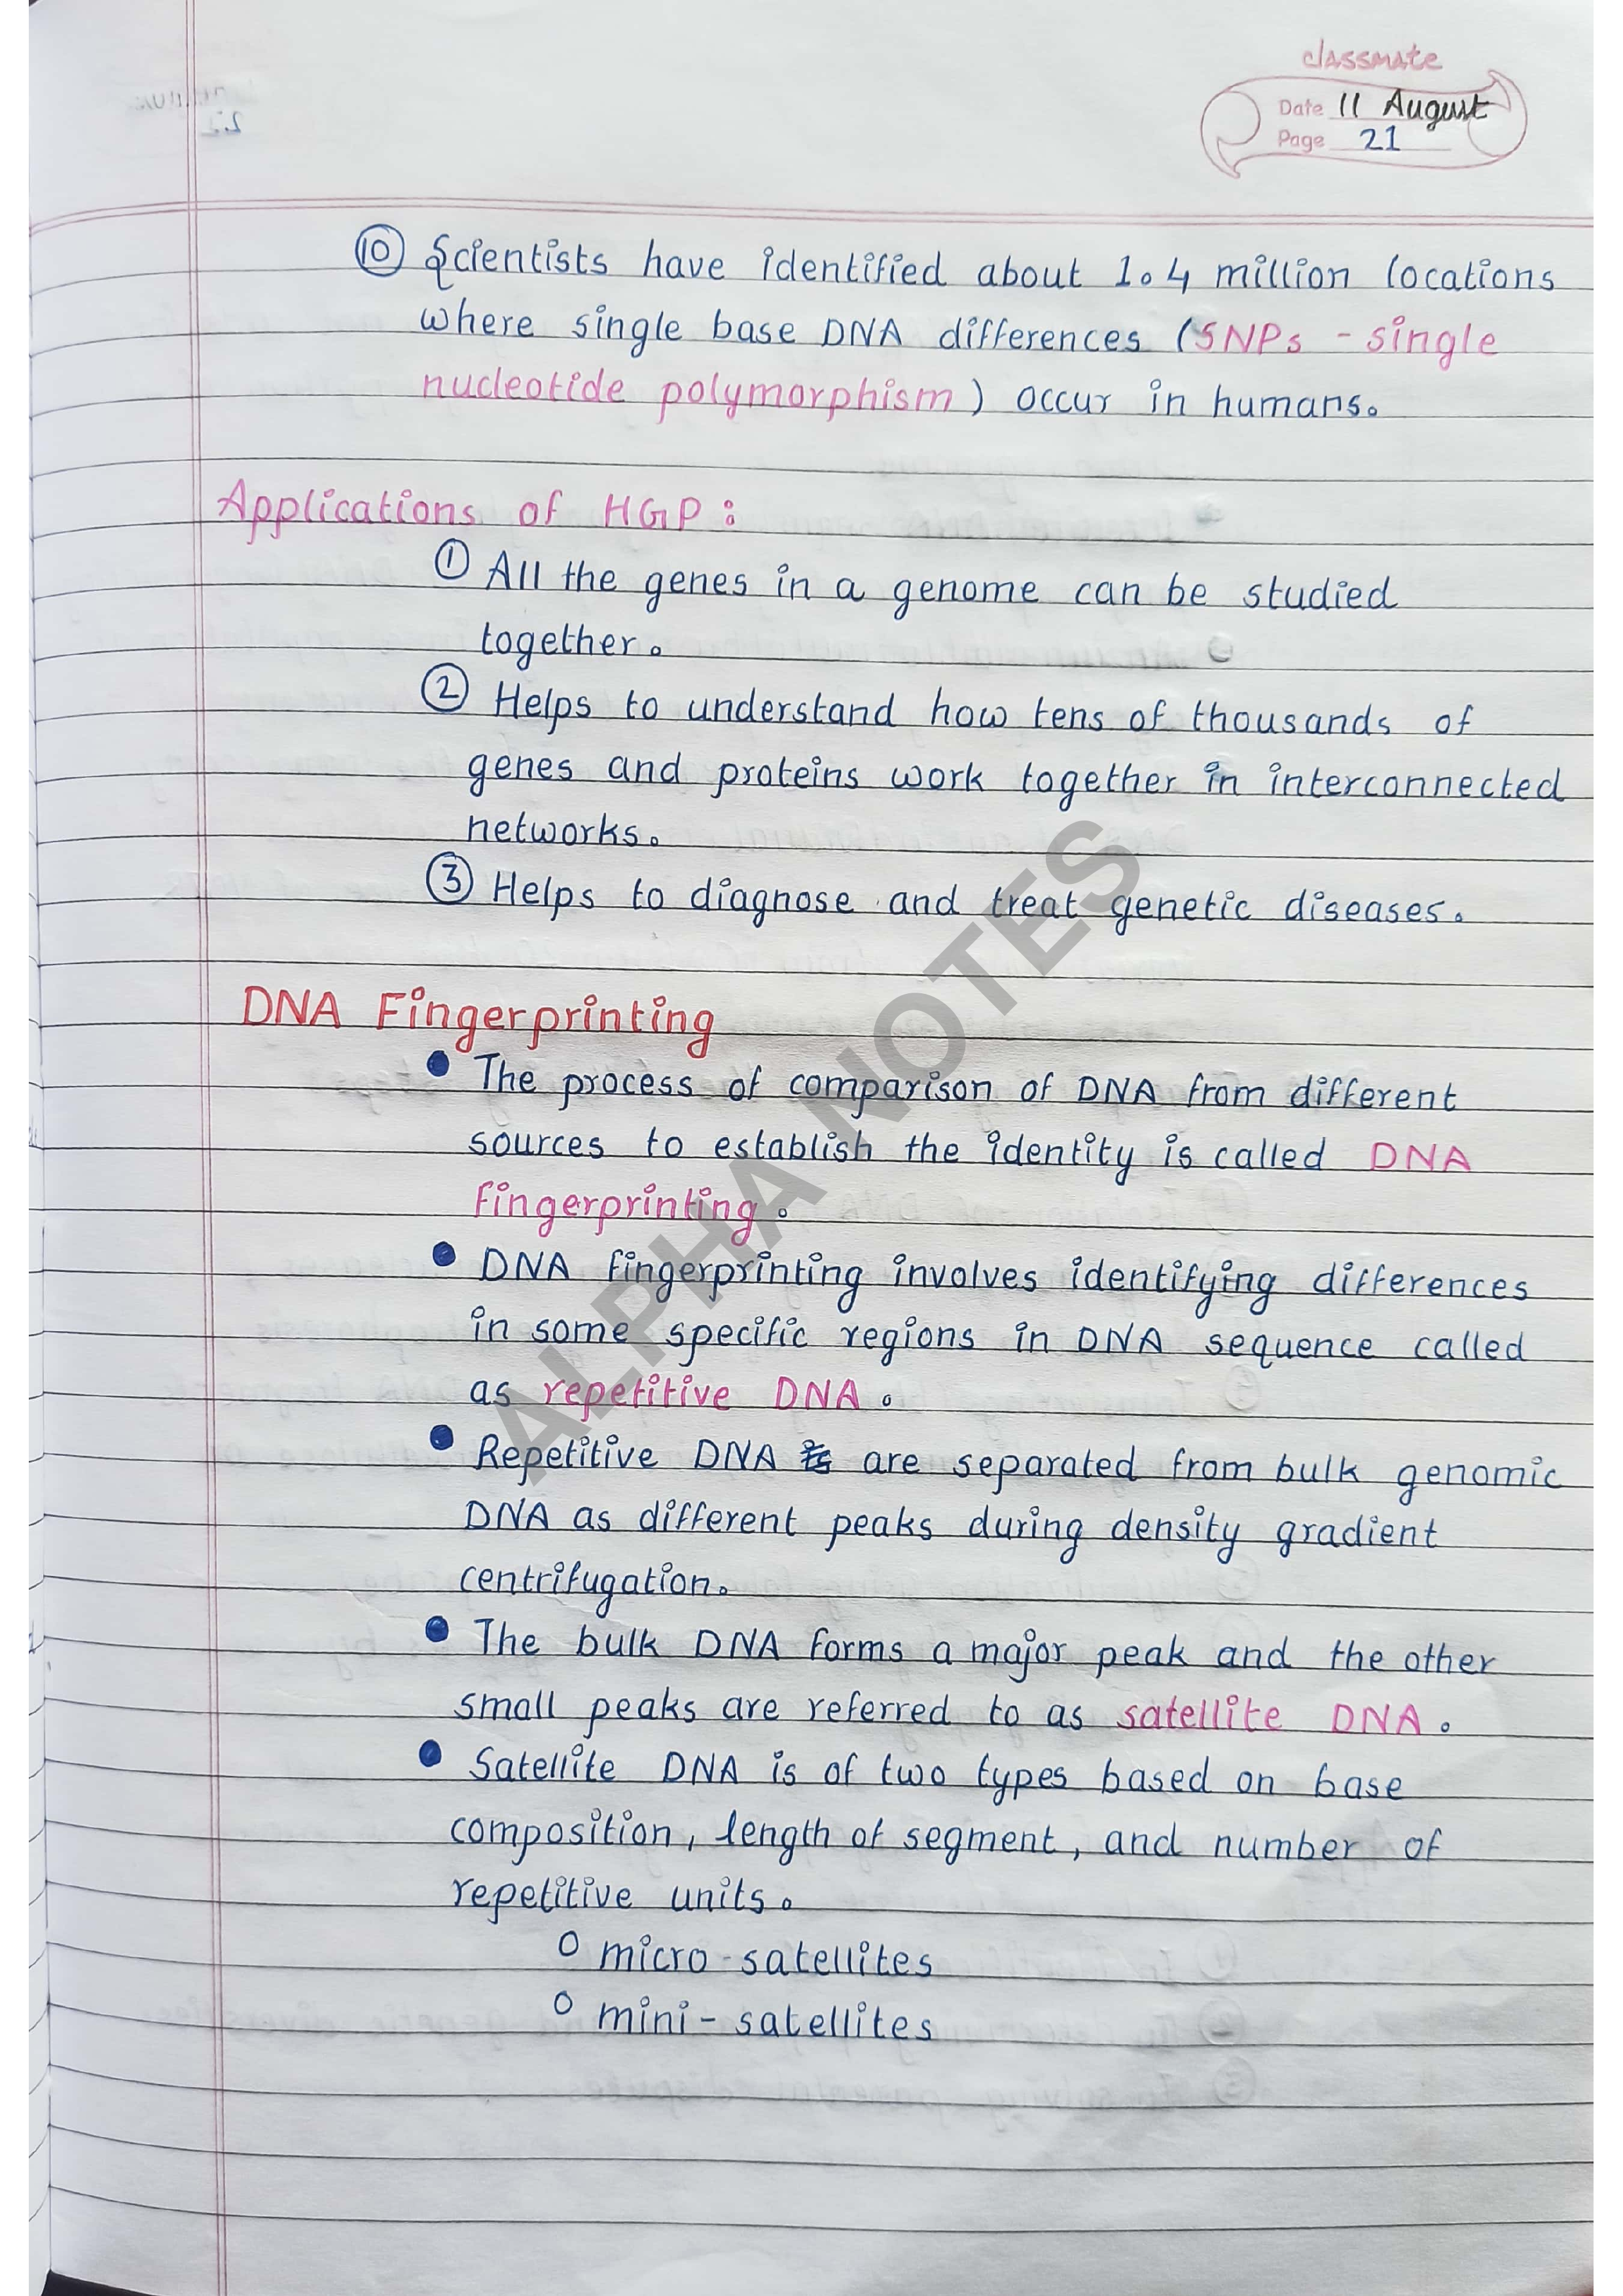 classmate
Date 11 August
Page 21
⑩ Scientists have identified about 1.4 million locations
where single base DNA differences (SNPs - single
nucleotide polymorphism) occur in humans.
Applications of HGP:
① All the genes in a genome can be studied
together.
② Helps to understand how tens of thousands of
genes and proteins work together in interconnected
networks.
③ Helps to diagnose and treat genetic diseases.
DNA Fingerprinting
• The process of comparison of DNA from different
sources to establish the identity is called DNA
fingerprinting.
• DNA fingerprinting involves identifying differences
in some specific regions in DNA sequence called
as repetitive DNA.
• Repetitive DNA are separated from bulk genomic
DNA as different peaks during density gradient
centrifugation.
• The bulk DNA forms a major peak and the other
small peaks are referred to as satellite DNA.
• Satellite DNA is of two types based on base
composition, length of segment, and number of
repetitive units.
○ micro-satellites
○ mini-satellites
ALPHA NOTES